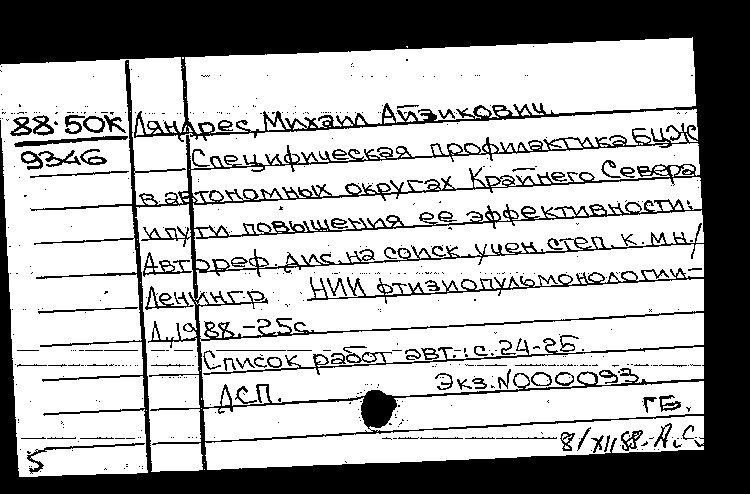 88-50К Ляндрес, Михаил Айзикович.
9346 Специфическая профилактика БЦЖ
в автономных округах Крайнего Севера
и пути повышения ее эффективности:
Автореф. дис. на соиск. учен. степ. к.м.н./
Ленингр. НИИ фтизиопульмонологии.-
Л., 1988.-25с.
Список работ авт.: с.24-25.
ДСП. Экз.N000093.
ГБ.
5 8/XII 88-А.С.